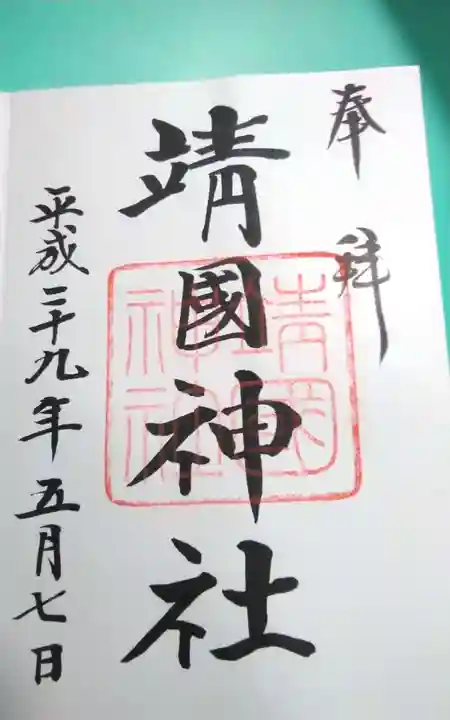 奉拝
靖國神社
靖國神社
平成二十九年五月七日